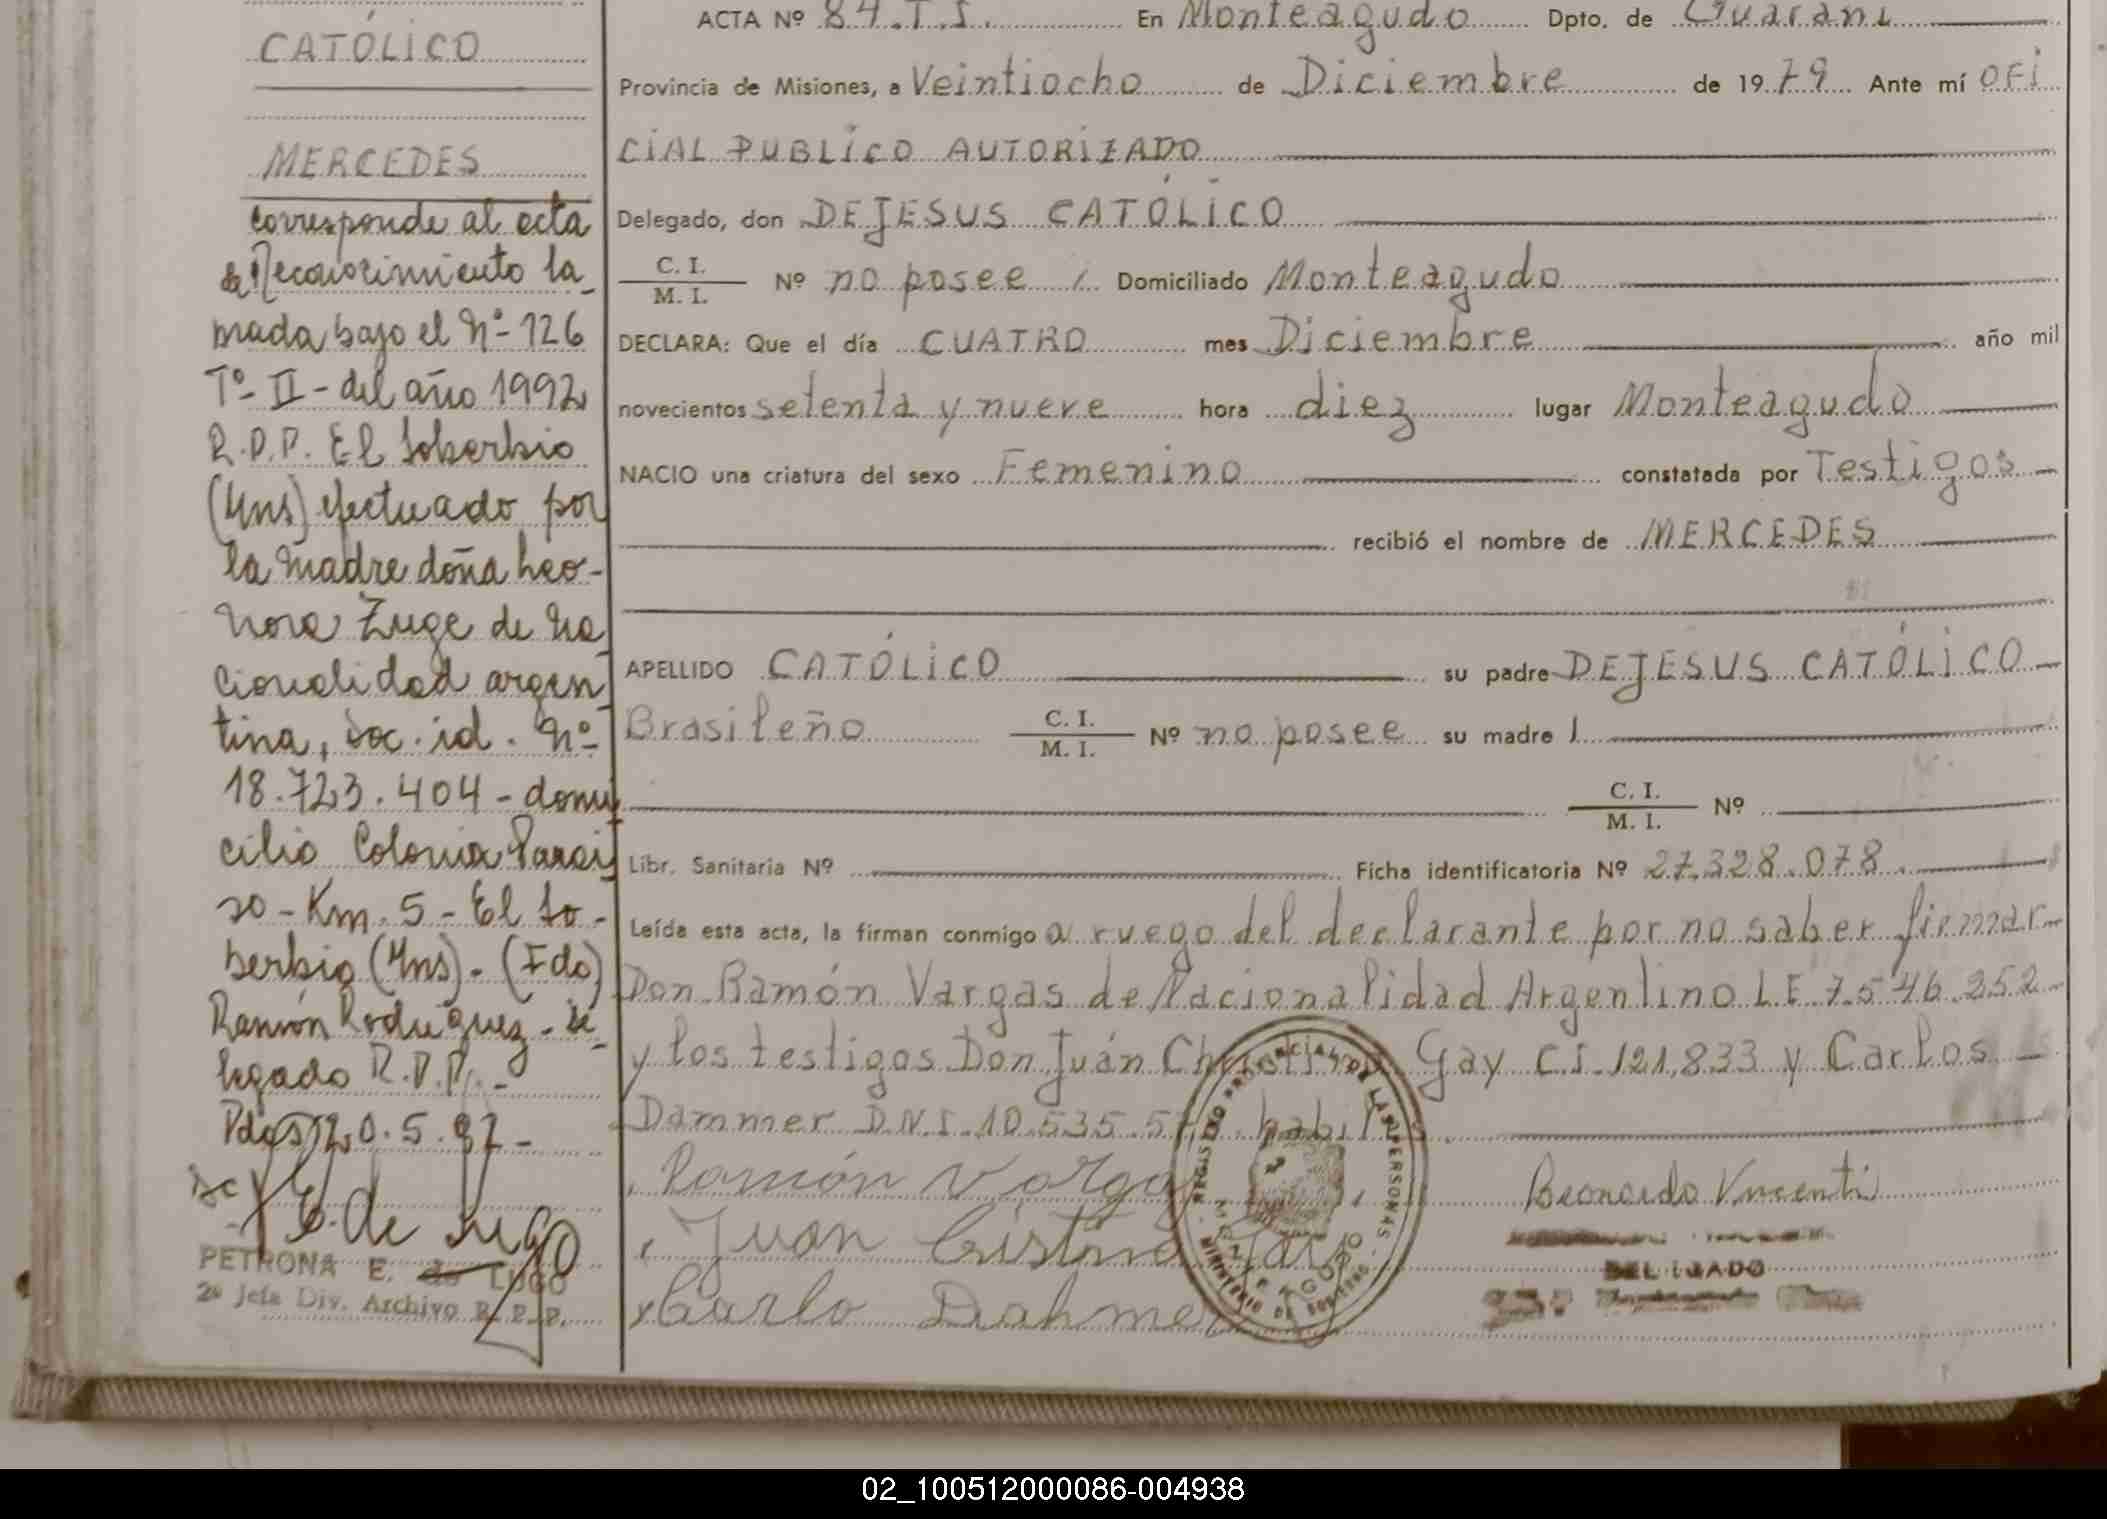 CATÓLICO
MERCEDES
corresponde al acta
de Reconocimiento la
brada bajo el Nº- 126
Tº- II - del año 1992
R.P.P. El Soberbio
(Mns) efectuado por
la madre doña Leo-
nora Zuge de na
cionalidad argen
tina, doc. id. Nº-
18.723.404 - domi
cilio Colonia Parai
so - Km. 5 - El So-
berbio (Mns). (Fdo)
Ramón Rodriguez - de
legado R.P.P. -
Pdas 20.5.92 -
E. de Lugo
PETRONA E. de LUGO
2ª Jefa Div. Archivo R.P.P.
ACTA Nº 84.T.I. En Monteagudo Dpto. de Guaraní
Provincia de Misiones, a Veintiocho de Diciembre de 1979 Ante mí OFI
CIAL PUBLICO AUTORIZADO
Delegado, don DEJESUS CATÓLICO
C. I.
M. I. Nº no posee Domiciliado Monteagudo
DECLARA: Que el día CUATRO mes Diciembre año mil
novecientos setenta y nueve hora diez lugar Monteagudo
NACIO una criatura del sexo Femenino constatada por Testigos
recibió el nombre de MERCEDES
APELLIDO CATÓLICO su padre DEJESUS CATÓLICO
Brasileño C. I.
M. I. Nº no posee su madre
C. I.
M. I. Nº
Libr. Sanitaria Nº Ficha identificatoria Nº 27.328.078
Leída esta acta, la firman conmigo a ruego del declarante por no saber firmar
Don Ramón Vargas de Nacionalidad Argentino L.E 7.546.252
y los testigos Don Juán Gay C.I. 121,833 y Carlos
Dammer D.N.I. 10.535.57
Ramón Vargas
Juan
Carlo Dahmer
REGISTRO PROVINCIAL DE LAS PERSONAS
MINISTERIO DE GOBIERNO
MONTEAGUDO
Vicenti
DELEGADO
02_100512000086-004938